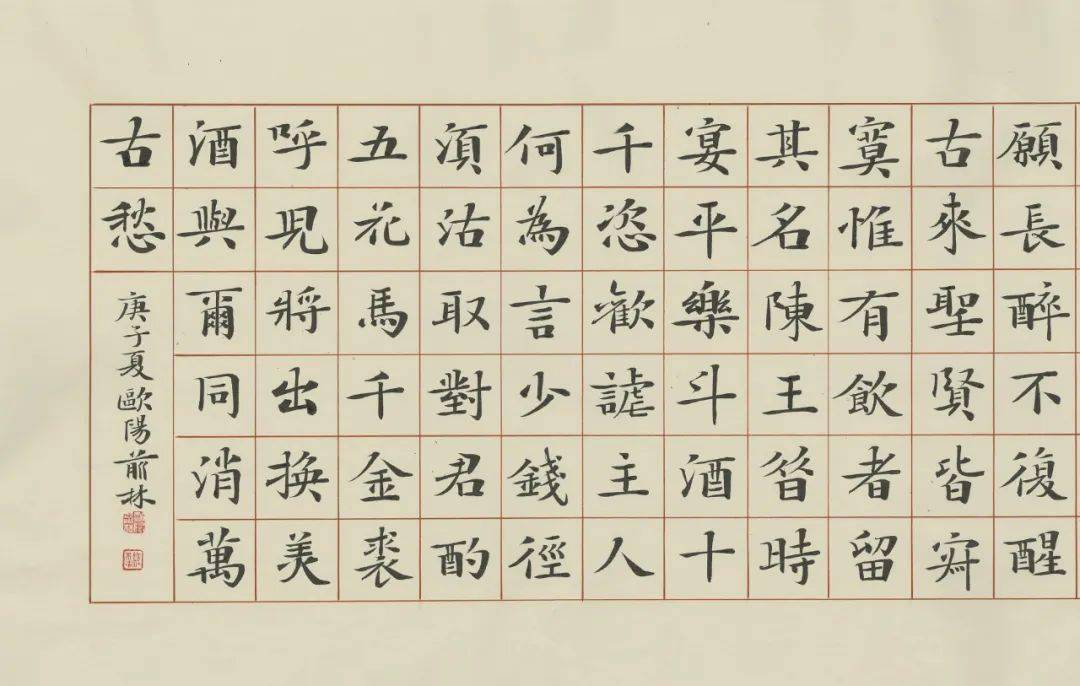 願長醉不復醒
古來聖賢皆寂
寞惟有飲者留
其名陳王昔時
宴平樂斗酒十
千恣歡謔主人
何為言少錢徑
須沽取對君酌
五花馬千金裘
呼兒將出換美
酒與爾同消萬
古愁
庚子夏歐陽前林